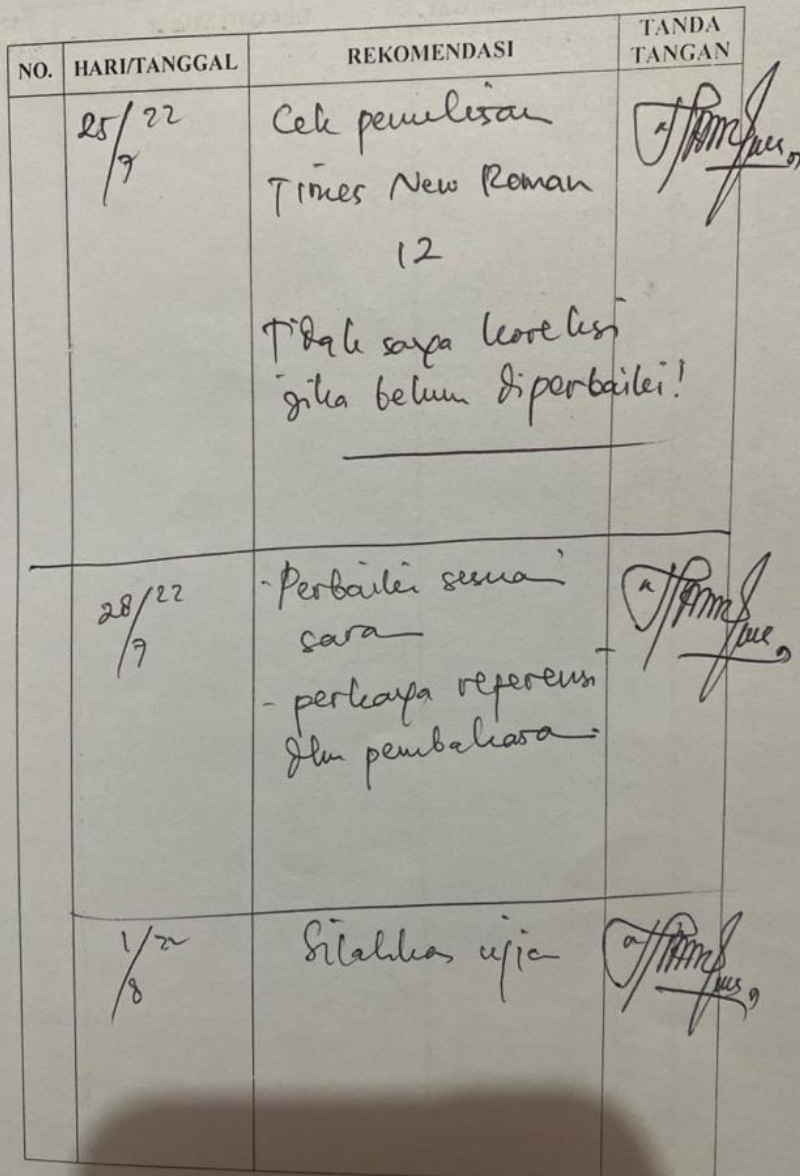 NO. HARI/TANGGAL REKOMENDASI TANDA TANGAN
25/7 22 Cek penulisan
Times New Roman
12
Tidak saya koreksi
jika belum diperbaiki!
28/7 22 - Perbaiki sesuai
saran
- perkaya referensi
dlm pembahasan.
1/8 22 Silahkan ujian